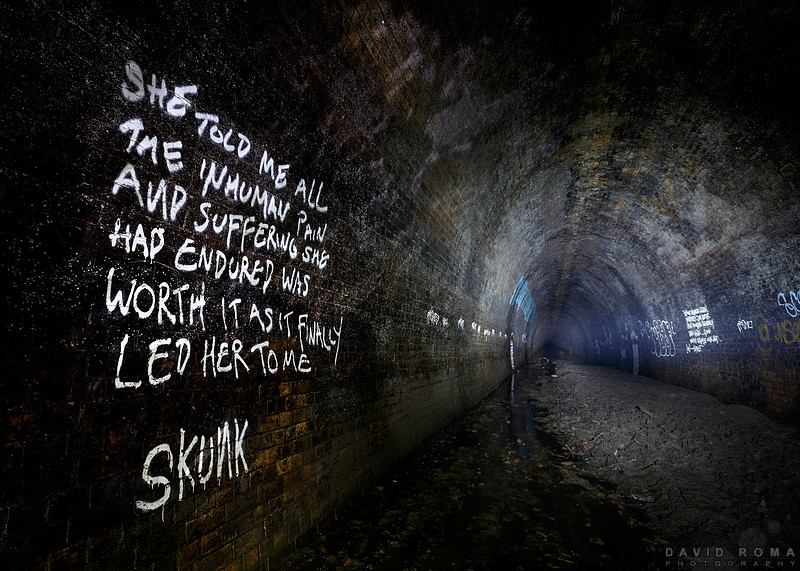 SHE TOLD ME ALL
THE INHUMAN PAIN
AND SUFFERING SHE
HAD ENDURED WAS
WORTH IT AS IT FINALLY
LED HER TO ME
SKUNK
DAVID ROMA
PHOTOGRAPHY